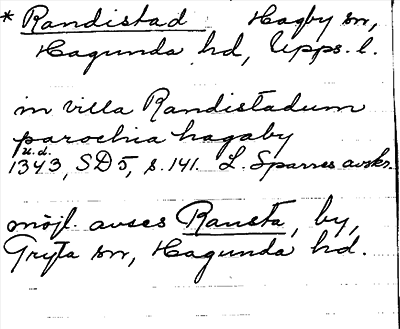 * Randistad Hagby sn,
Hagunda hd, Upps. l.
in villa Randistadum
parochia hagaby
u.d.
1343, SD 5, s. 141. L. Sparres avskr.
möjl. avses Ransta, by,
Gryta sn, Hagunda hd.